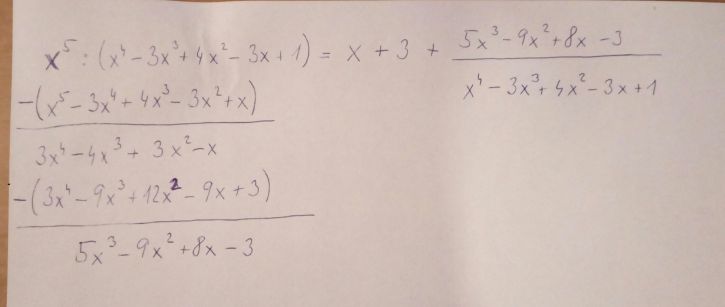 x⁵ : (x⁴ - 3x³ + 4x² - 3x + 1) = x + 3 + (5x³ - 9x² + 8x - 3)/(x⁴ - 3x³ + 4x² - 3x + 1)
-(x⁵ - 3x⁴ + 4x³ - 3x² + x)
3x⁴ - 4x³ + 3x² - x
-(3x⁴ - 9x³ + 12x² - 9x + 3)
5x³ - 9x² + 8x - 3